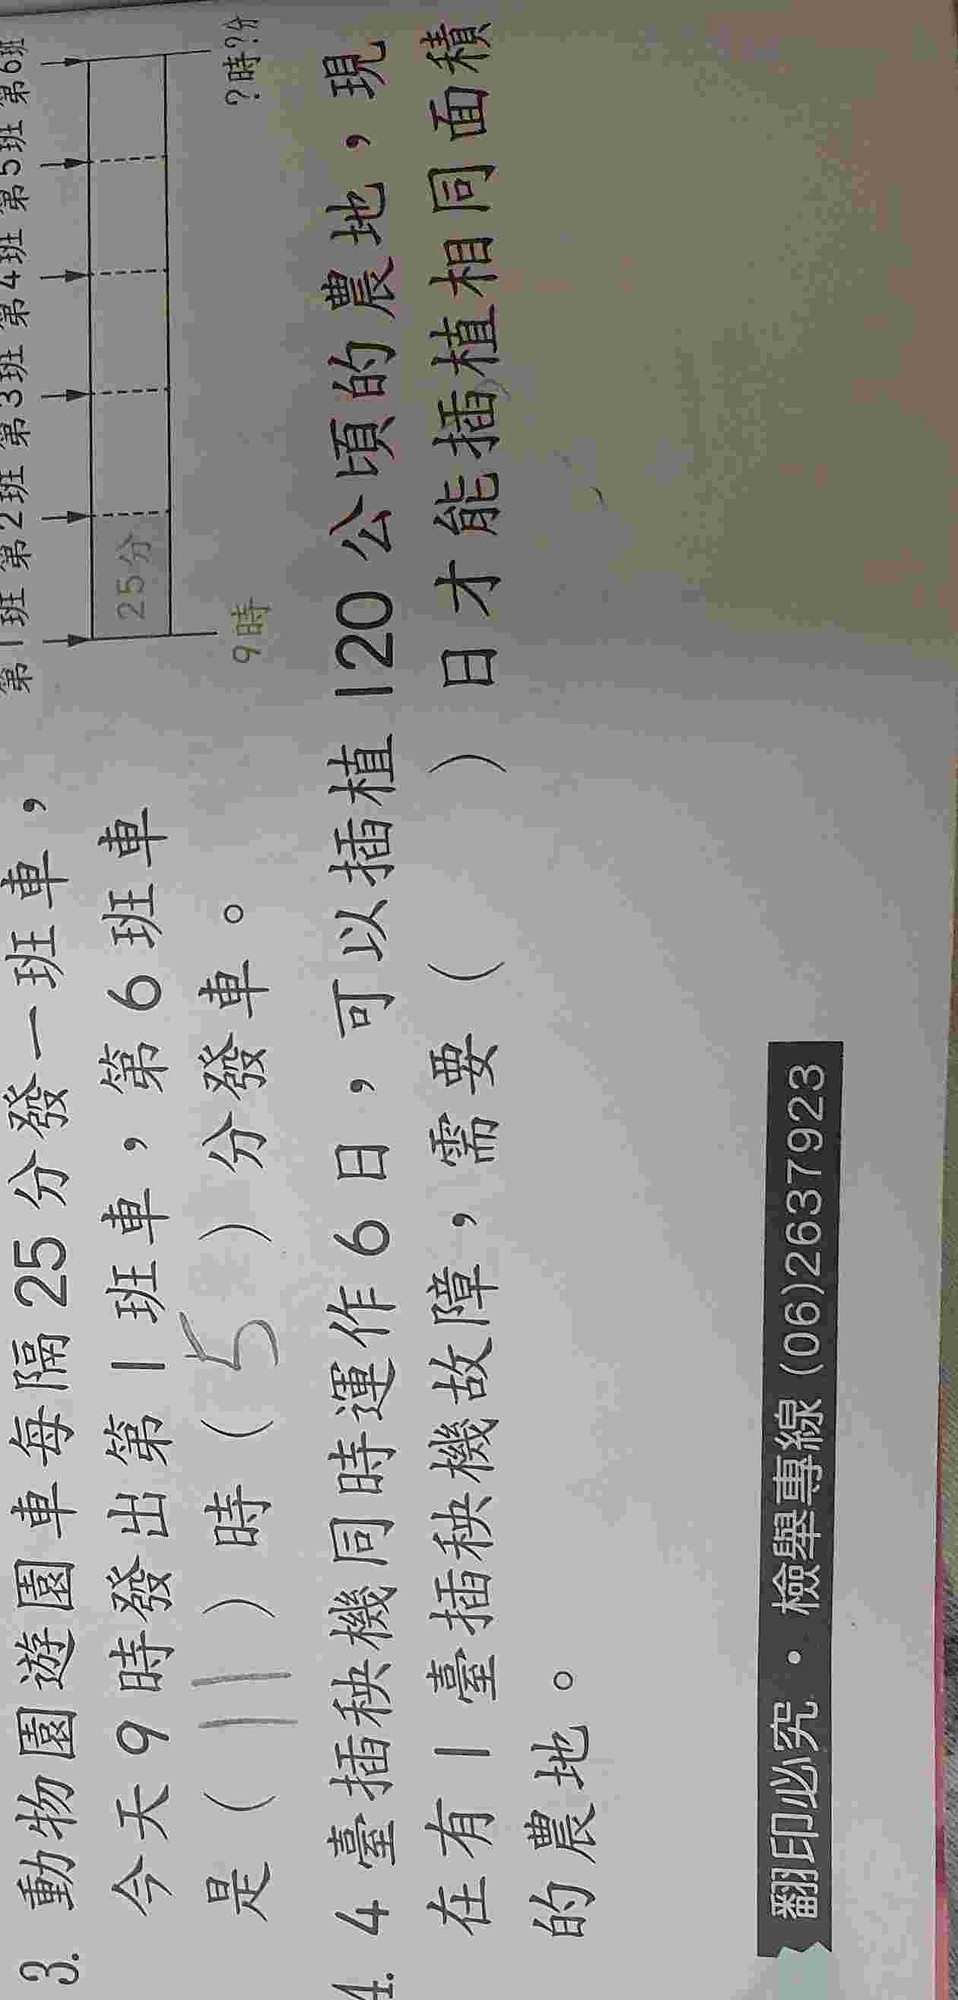 3. 動物園遊園車每隔25分發一班車，
今天9時發出第1班車，第6班車
是（11）時（5）分發車。
第1班 第2班 第3班 第4班 第5班 第6班
25分
9時 ?時?分
4. 4臺插秧機同時運作6日，可以插植120公頃的農地，現
在有1臺插秧機故障，需要（ ）日才能插植相同面積
的農地。
翻印必究・檢舉專線(06)2637923